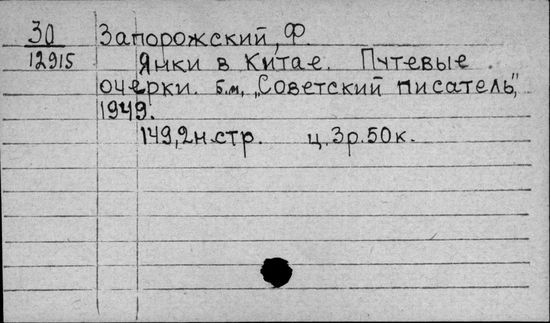 30
12915
Запорожский, Ф
Янки в Китае. Путевые
очерки. б.м, „Советский писатель",
1949.
149,2н.стр. ц.3р.50к.